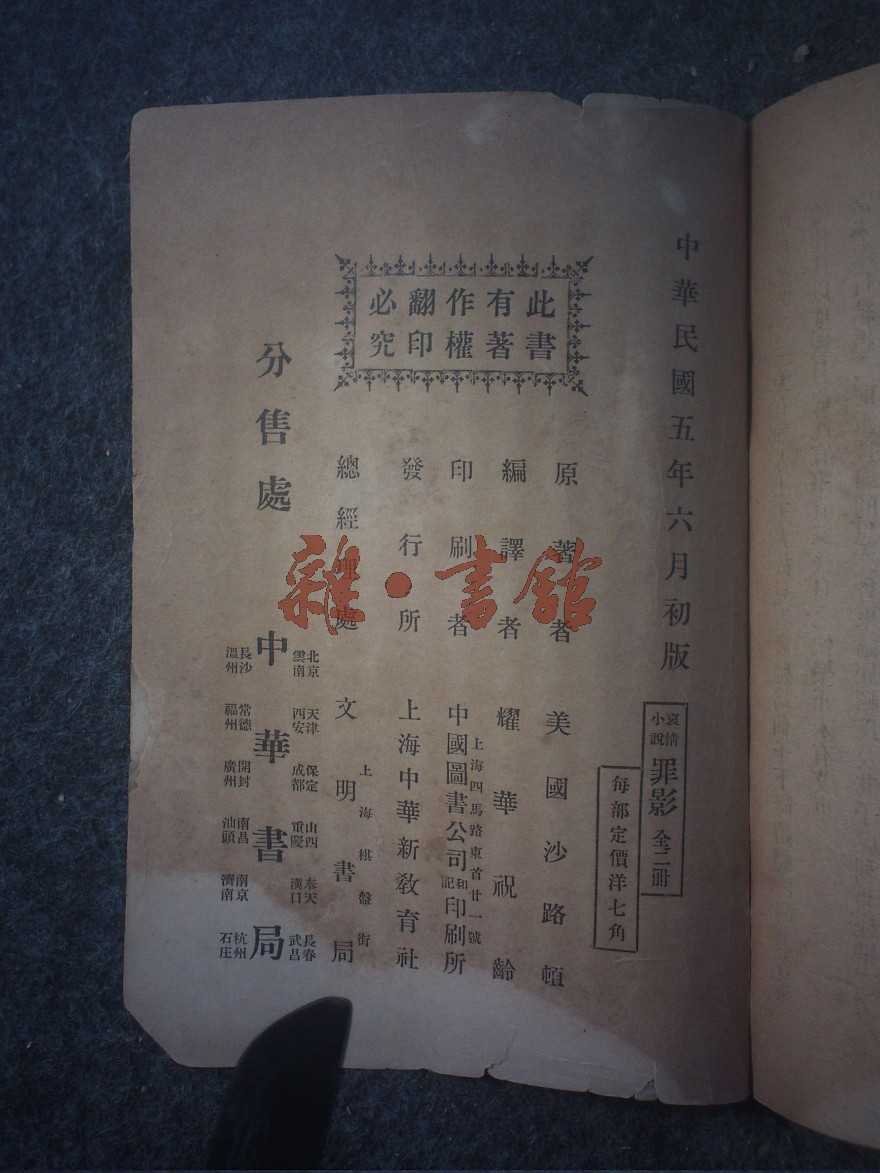 中華民國五年六月初版
哀情小說 罪影 全二冊
每部定價洋七角
此書有著作權翻印必究
原著者 美國沙路頓
編譯者 耀華祝齡
印刷者 上海四馬路東首廿一號 中國圖書公司和記印刷所
發行所 上海中華新敎育社
總經理處 上海棋盤街 文明書局
分售處 中華書局
北京 天津 保定 山西 奉天 長春
雲南 四安 成都 重慶 漢口 武昌
長沙 常德 開封 南昌 南京 杭州
溫州 福州 廣州 汕頭 濟南 石庄
雜·書館